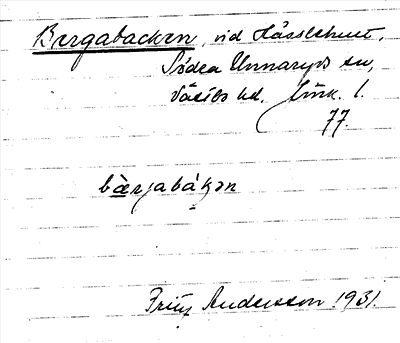 Bergabacken, vid Hässlehult,
Södra Unnaryds sn,
Västbo hd. Jönk. l.
77
bæ̀rjabákən
Fritz Andersson 1931.